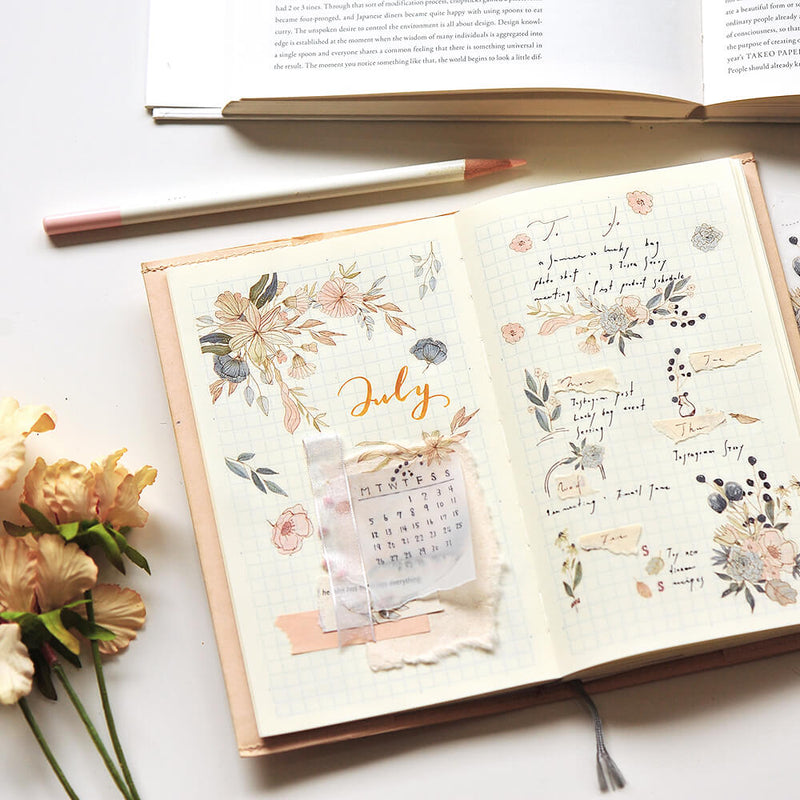 had 2 or 3 tines. Through that sort of modification process,
became four-pronged, and Japanese diners became quite happy with using spoons to eat
curry. The unspoken desire to control the environment is all about design. Design knowl-
edge is established at the moment when the wisdom of many individuals is aggregated into
a single spoon and everyone shares a common feeling that there is something universal in
the result. The moment you notice something like that, the world begins to look a little dif-
ate a beautiful form or
ordinary people already
of consciousness, so that
the purpose of creating
year's TAKEO PAPER
People should already
July
M T W T F S S
1 2 3 4
5 6 7 8 9 10 11
12 13 14 15 16 17 18
19 20 21 22 23 24 25
26 27 28 29 30 31
everything.
To
a summer lucky bag
meeting
Mon
Instagram post
Lucky bag event
Tue
Thu
Instagram Story
Wed
meeting
S
S
Try new
dinner
recipes